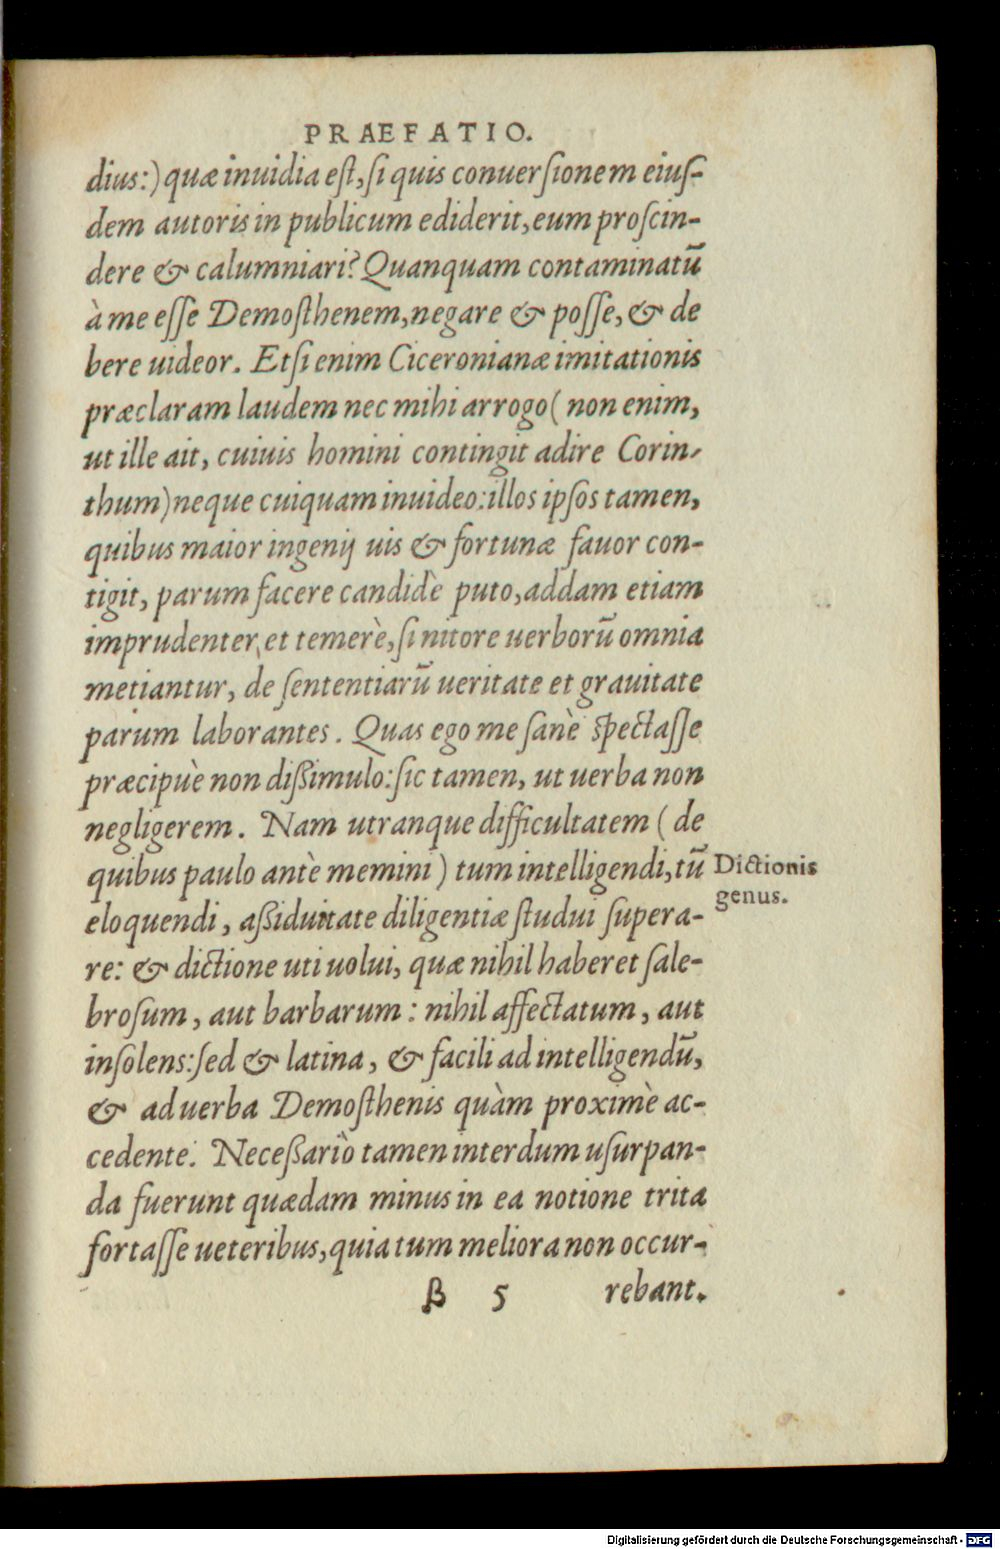 PRAEFATIO.
dius:) quæ inuidia eſt, ſi quis conuerſionem eiuſ-
dem autoris in publicum ediderit, eum proſcin-
dere & calumniari? Quanquam contaminatū
à me eſſe Demoſthenem, negare & poſſe, & de
bere uideor. Etſi enim Ciceronianæ imitationis
præclaram laudem nec mihi arrogo (non enim,
ut ille ait, cuiuis homini contingit adire Corin-
thum) neque cuiquam inuideo: illos ipſos tamen,
quibus maior ingenij uis & fortunæ fauor con-
tigit, parum facere candidè puto, addam etiam
imprudenter, et temerè, ſi nitore uerborū omnia
metiantur, de ſententiarū ueritate et grauitate
parum laborantes. Quas ego me ſanè ſpectaſſe
præcipuè non dißimulo: ſic tamen, ut uerba non
negligerem. Nam utranque difficultatem (de
quibus paulo antè memini) tum intelligendi, tū
Dictionis
genus.
eloquendi, aßiduitate diligentiæ ſtudui ſupera-
re: & dictione uti uolui, quæ nihil haberet ſale-
broſum, aut barbarum: nihil affectatum, aut
inſolens: ſed & latina, & facili ad intelligendū,
& ad uerba Demoſthenis quàm proximè ac-
cedente. Neceßariò tamen interdum uſurpan-
da fuerunt quædam minus in ea notione trita
fortaſſe ueteribus, quia tum meliora non occur-
β 5 rebant.
Digitalisierung gefördert durch die Deutsche Forschungsgemeinschaft - DFG